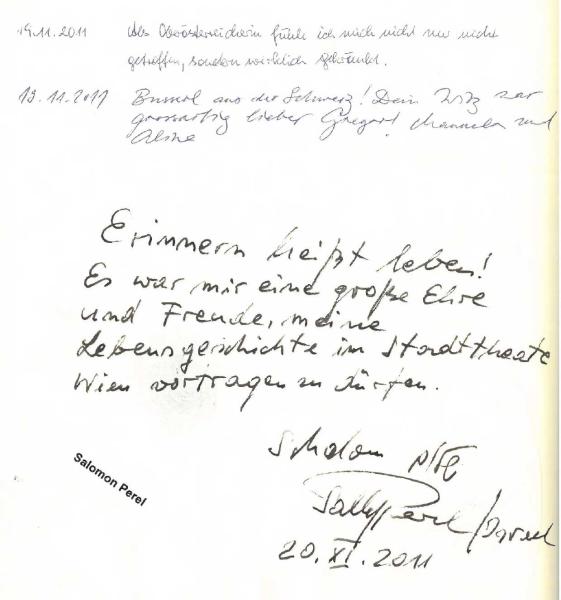 19.11.2011 Als Oberösterreicherin fühle ich mich nicht nur nicht
getroffen, sondern wirklich gekränkt!
19.11.2011 Busserl aus der Schweiz! Dein Witz war
grossartig lieber Gregor! Manuela und
Erinnern heißt leben!
Es war mir eine große Ehre
und Freude, meine
Lebensgeschichte im Stadttheater
Wien vortragen zu dürfen.
Schalom שלום
Sally Perel / Israel
20.XI.2011
Salomon Perel